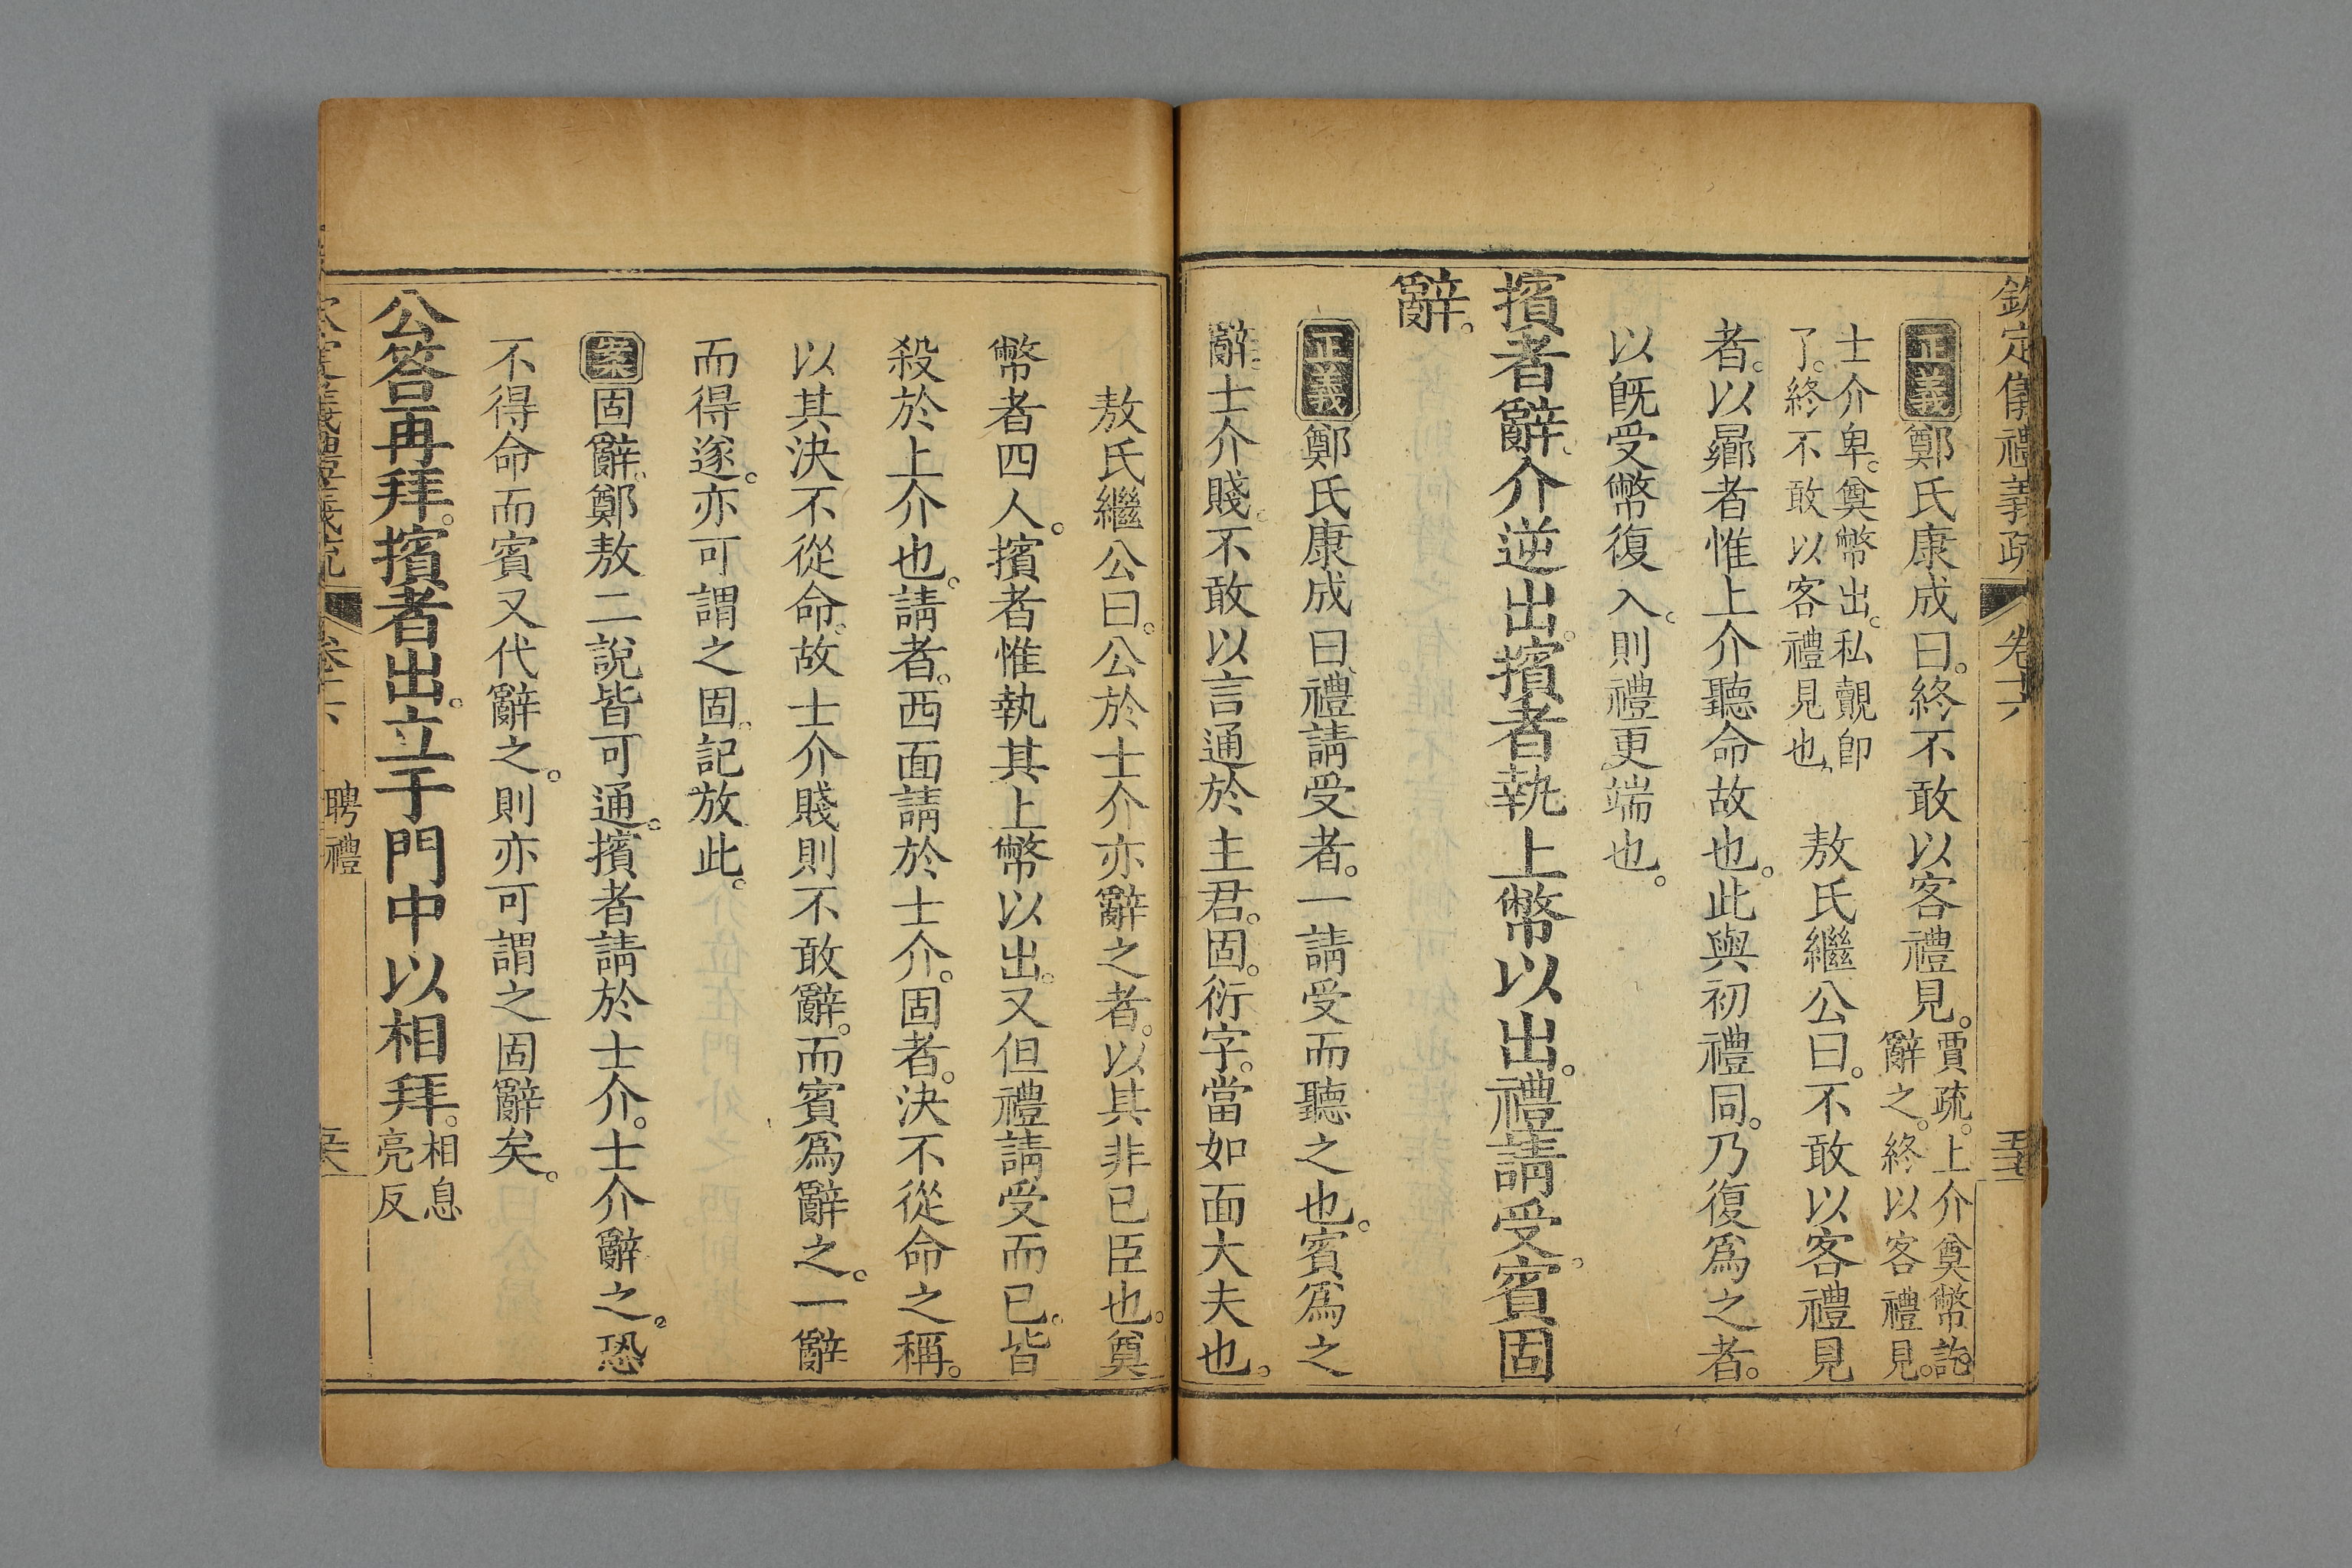 欽定儀禮義疏 卷十六
正義鄭氏康成曰。終不敢以客禮見。賈疏。上介奠幣訖。辭之。終以客禮見。
士介卑。奠幣出。私覿卽了。終不敢以客禮見也。 敖氏繼公曰。不敢以客禮見
者。以曏者惟上介聽命故也。此與初禮同。乃復爲之者。
以既受幣復入。則禮更端也。
擯者辭。介逆出。擯者執上幣以出。禮請受。賓固
辭。
正義鄭氏康成曰。禮請受者。一請受而聽之也。賓爲之
辭。士介賤。不敢以言通於主君。固。衍字。當如面大夫也。
敖氏繼公曰。公於士介亦辭之者。以其非已臣也。奠
幣者四人。擯者惟執其上幣以出。又但禮請受而已。皆
殺於上介也。請者。西面請於士介。固者。決不從命之稱。
以其決不從命。故士介賤則不敢辭。而賓爲辭之。一辭
而得遂。亦可謂之固。記放此。
案固辭。鄭敖二說皆可通。擯者請於士介。士介辭之。恐
不得命而賓又代辭之。則亦可謂之固辭矣。
公答再拜。擯者出。立于門中以相拜。相息亮反
聘禮